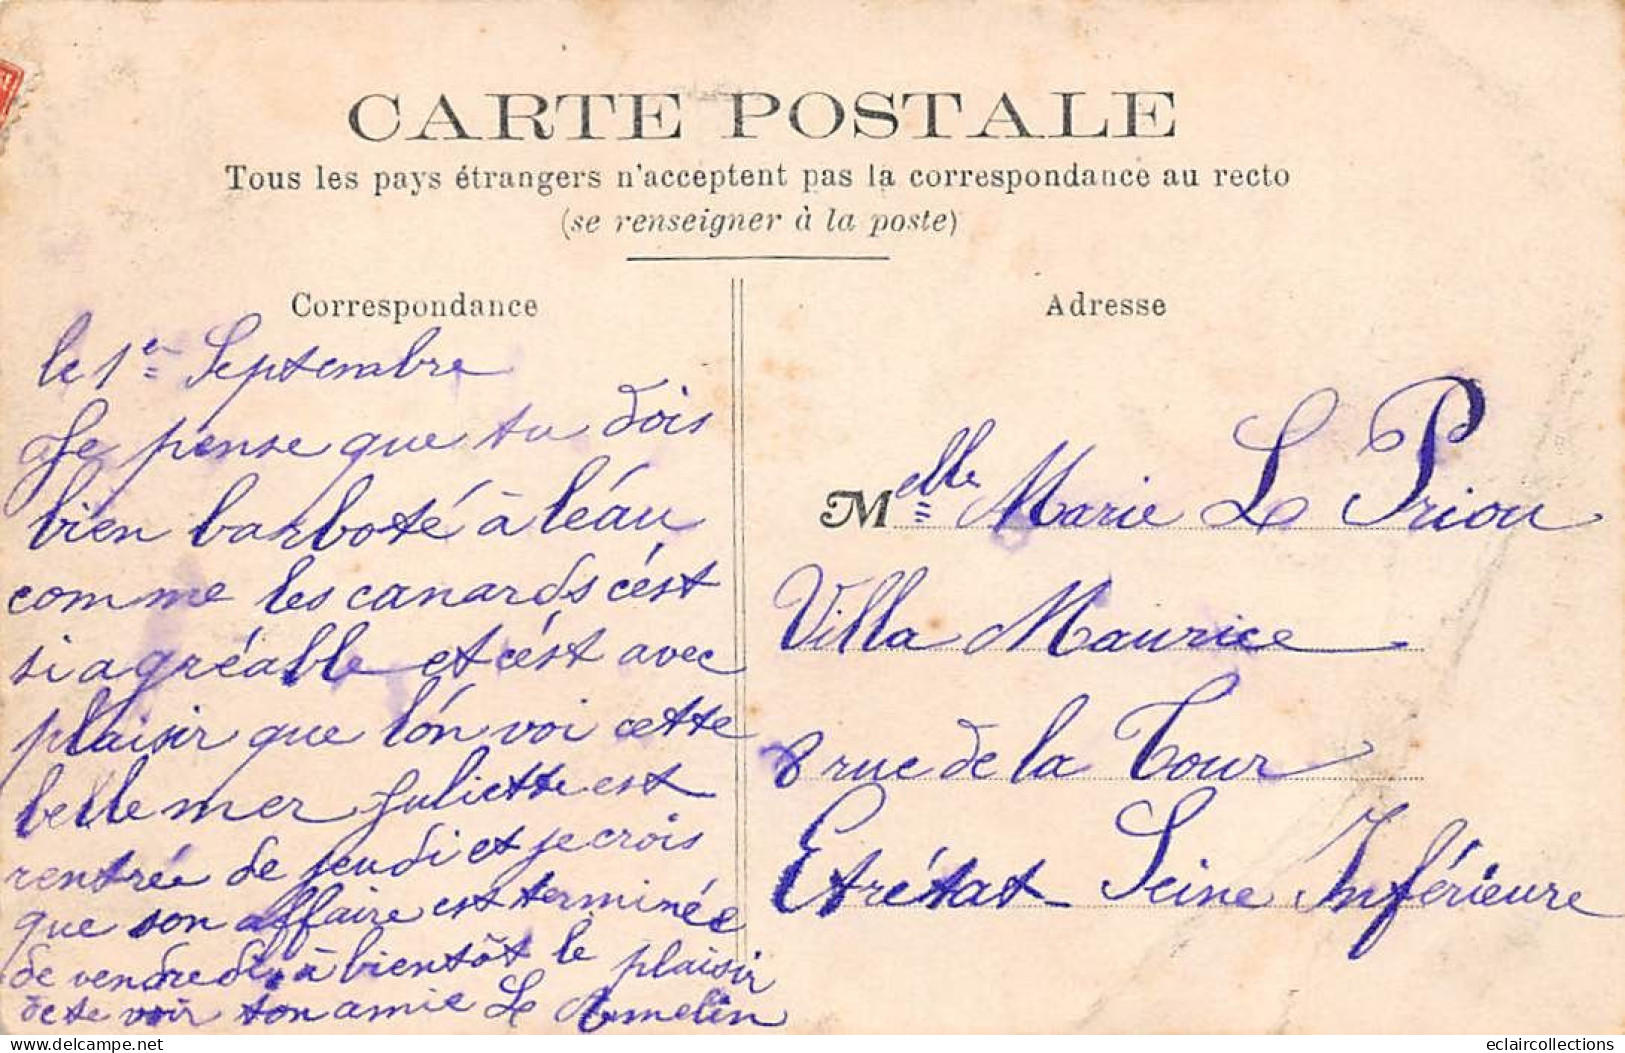 CARTE POSTALE
Tous les pays étrangers n'acceptent pas la correspondance au recto
(se renseigner à la poste)
Correspondance
le 1e Septembre
Je pense que tu dois
bien barboté à léau
comme les canards cést
si agréable et cést avec
plaisir que lón voi cette
belle mer Juliette est
rentrée de jeudi et je crois
que son affaire est terminée
de vendredi, à bientôt le plaisir
de te voir ton amie Le
Adresse
Melle Marie Le Priou
Villa Maurice
8 rue de la Tour
Etrétat Seine Inférieure
delcampe.net
eclaircollections